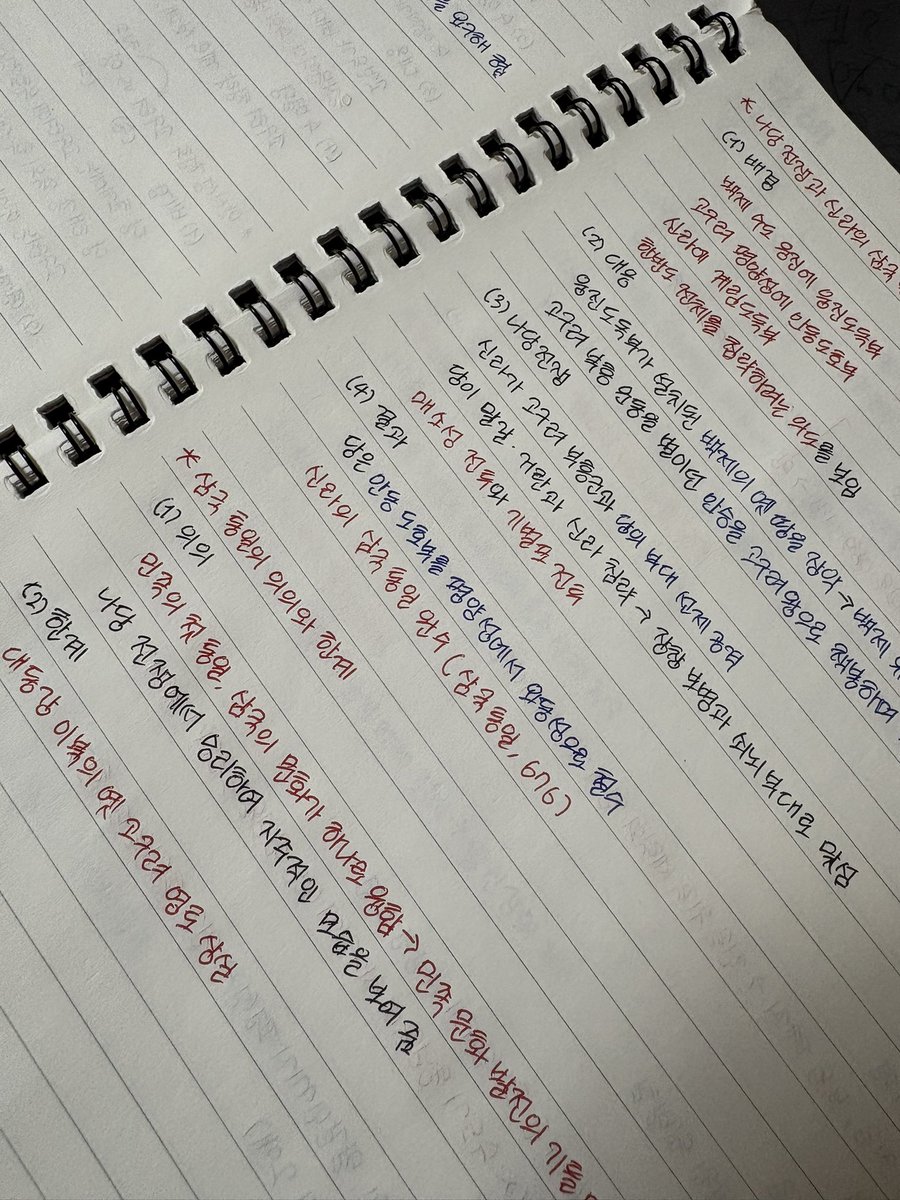 * 나당 전쟁과 신라의 삼국
(1) 배경
백제 수도 웅진에 웅진도독부
고구려 평양성에 안동도호부
신라에 계림도독부
한반도 전체를 점령하려는 의도를 보임
(2) 대응
웅진도독부가 설치된 백제의 옛 땅을 장악 → 백제
고구려 부흥 운동을 벌이던 안승을 고구려왕으로 책봉하며
(3) 나당전쟁
신라가 고구려 부흥군과 당의 부대 선제 공격
당이 말갈·거란과 신라 침략 →
매소성 전투와 기벌포 전투
(4) 결과
당은 안동 도호부를 평양성에서 요동성으로 철수
신라의 삼국 통일 완수 (삼국통일, 676)
* 삼국 통일의 의의와 한계
(1) 의의
민족의 첫 통일, 삼국의 문화가 하나로 융합 → 민족 문화 발전의 기틀을
나당 전쟁에서 승리하여 자주적인 모습을 보여 줌
(2) 한계
대동강 이북의 옛 고구려 영토 상실